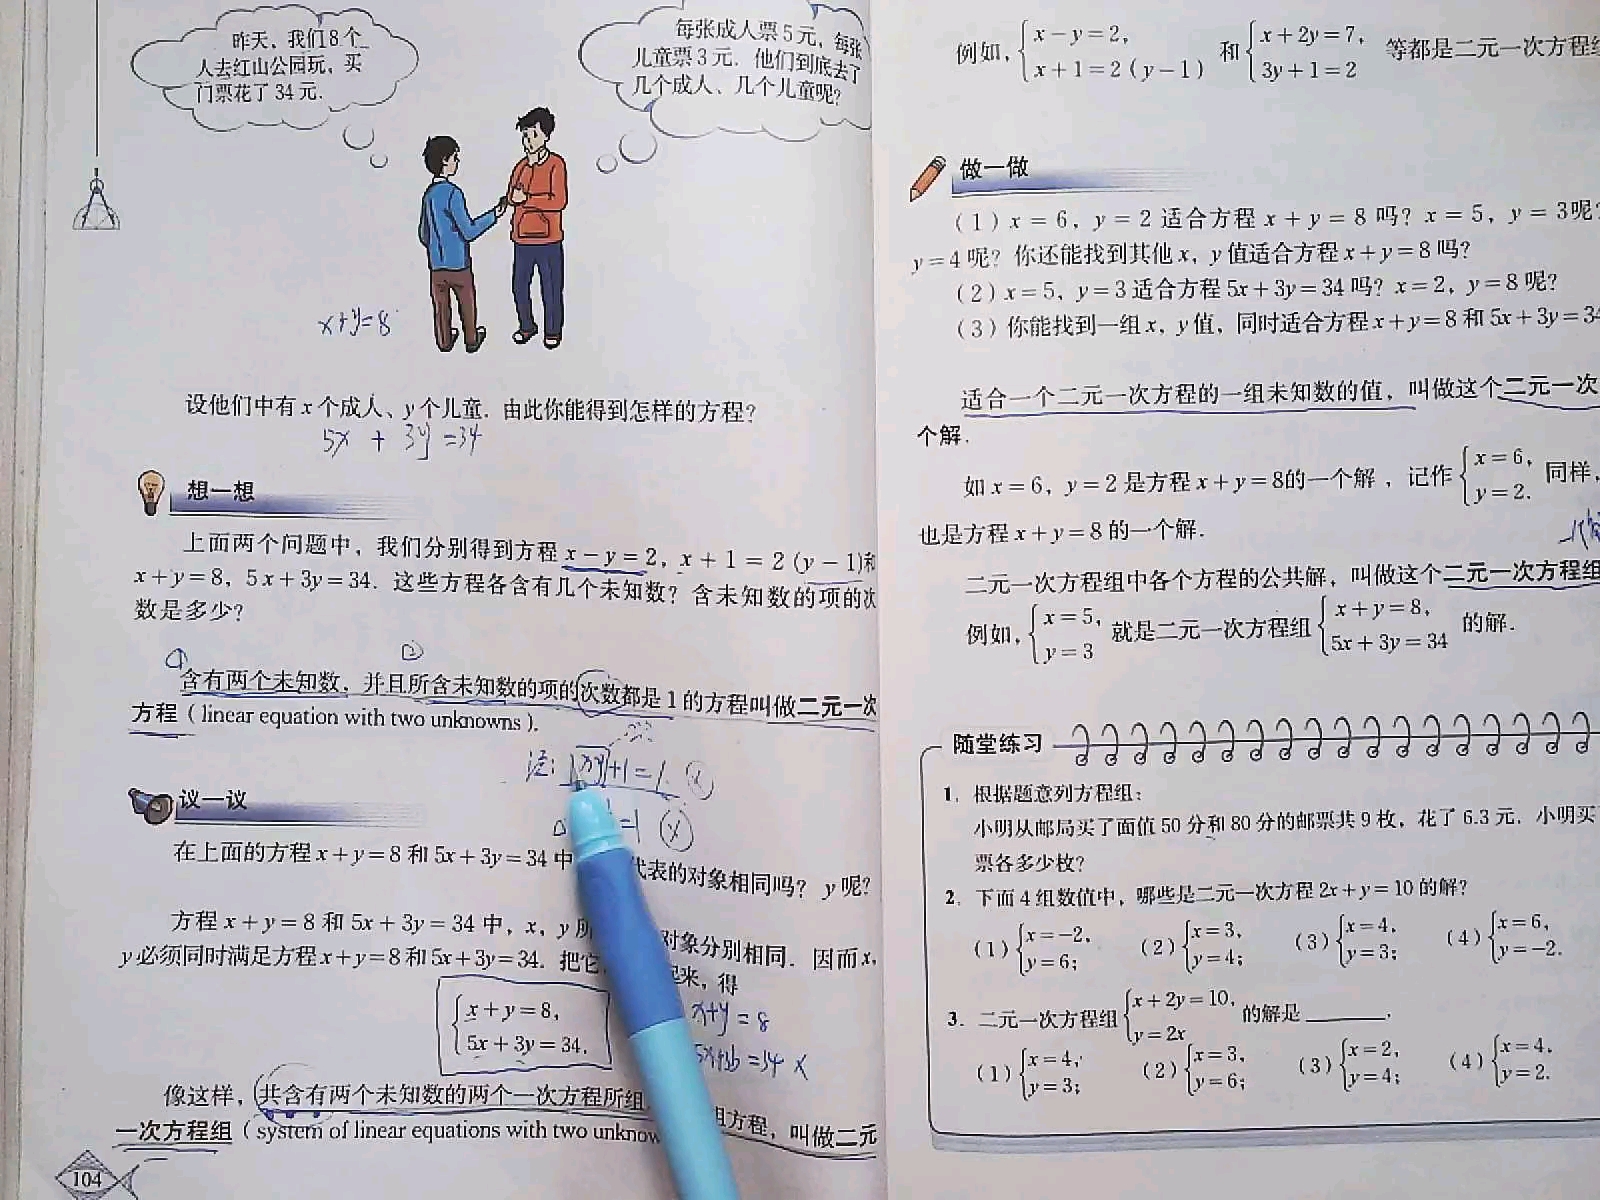 昨天，我们8个
人去红山公园玩，买
门票花了34元.
每张成人票5元，每张
儿童票3元．他们到底去了
几个成人、几个儿童呢？
x+y=8
设他们中有x个成人、y个儿童．由此你能得到怎样的方程？
5x + 3y =34
想一想
上面两个问题中，我们分别得到方程 x－y＝2，x＋1＝2（y－1)和
x＋y＝8，5x＋3y＝34．这些方程各含有几个未知数？含未知数的项的次
数是多少？
① ②
含有两个未知数，并且所含未知数的项的次数都是1的方程叫做二元一次
方程（linear equation with two unknowns）.
注: xy+1=1
=1
议一议
在上面的方程x＋y＝8和5x＋3y＝34中
代表的对象相同吗？y呢？
方程x＋y＝8和5x＋3y＝34中，x，y所
对象分别相同．因而x，
y必须同时满足方程x＋y＝8和5x＋3y＝34．把它
起来，得
x＋y＝8，
5x＋3y＝34.
x+y=8
=34 x
像这样，共含有两个未知数的两个一次方程所组
组方程，叫做二元
一次方程组（system of linear equations with two unknow
104
例如，x－y＝2，
x＋1＝2（y－1）
和 x＋2y＝7，
3y＋1＝2
等都是二元一次方程组
做一做
（1）x＝6，y＝2适合方程x＋y＝8吗？x＝5，y＝3呢？
y＝4呢？你还能找到其他x，y值适合方程x＋y＝8吗？
（2）x＝5，y＝3适合方程5x＋3y＝34吗？x＝2，y＝8呢？
（3）你能找到一组x，y值，同时适合方程x＋y＝8和5x＋3y＝34
适合一个二元一次方程的一组未知数的值，叫做这个二元一次
个解.
如x＝6，y＝2是方程x＋y＝8的一个解，记作 x＝6，
y＝2.
同样，
也是方程x＋y＝8的一个解.
二元一次方程组中各个方程的公共解，叫做这个二元一次方程组
例如，x＝5，
y＝3
就是二元一次方程组 x＋y＝8，
5x＋3y＝34
的解.
随堂练习
1．根据题意列方程组：
小明从邮局买了面值50分和80分的邮票共9枚，花了6.3元．小明买
票各多少枚？
2．下面4组数值中，哪些是二元一次方程2x＋y＝10的解？
（1）x＝－2，
y＝6；
（2）x＝3，
y＝4；
（3）x＝4，
y＝3；
（4）x＝6，
y＝－2.
3．二元一次方程组 x＋2y＝10，
y＝2x
的解是＿＿＿.
（1）x＝4，
y＝3；
（2）x＝3，
y＝6；
（3）x＝2，
y＝4；
（4）x＝4，
y＝2.